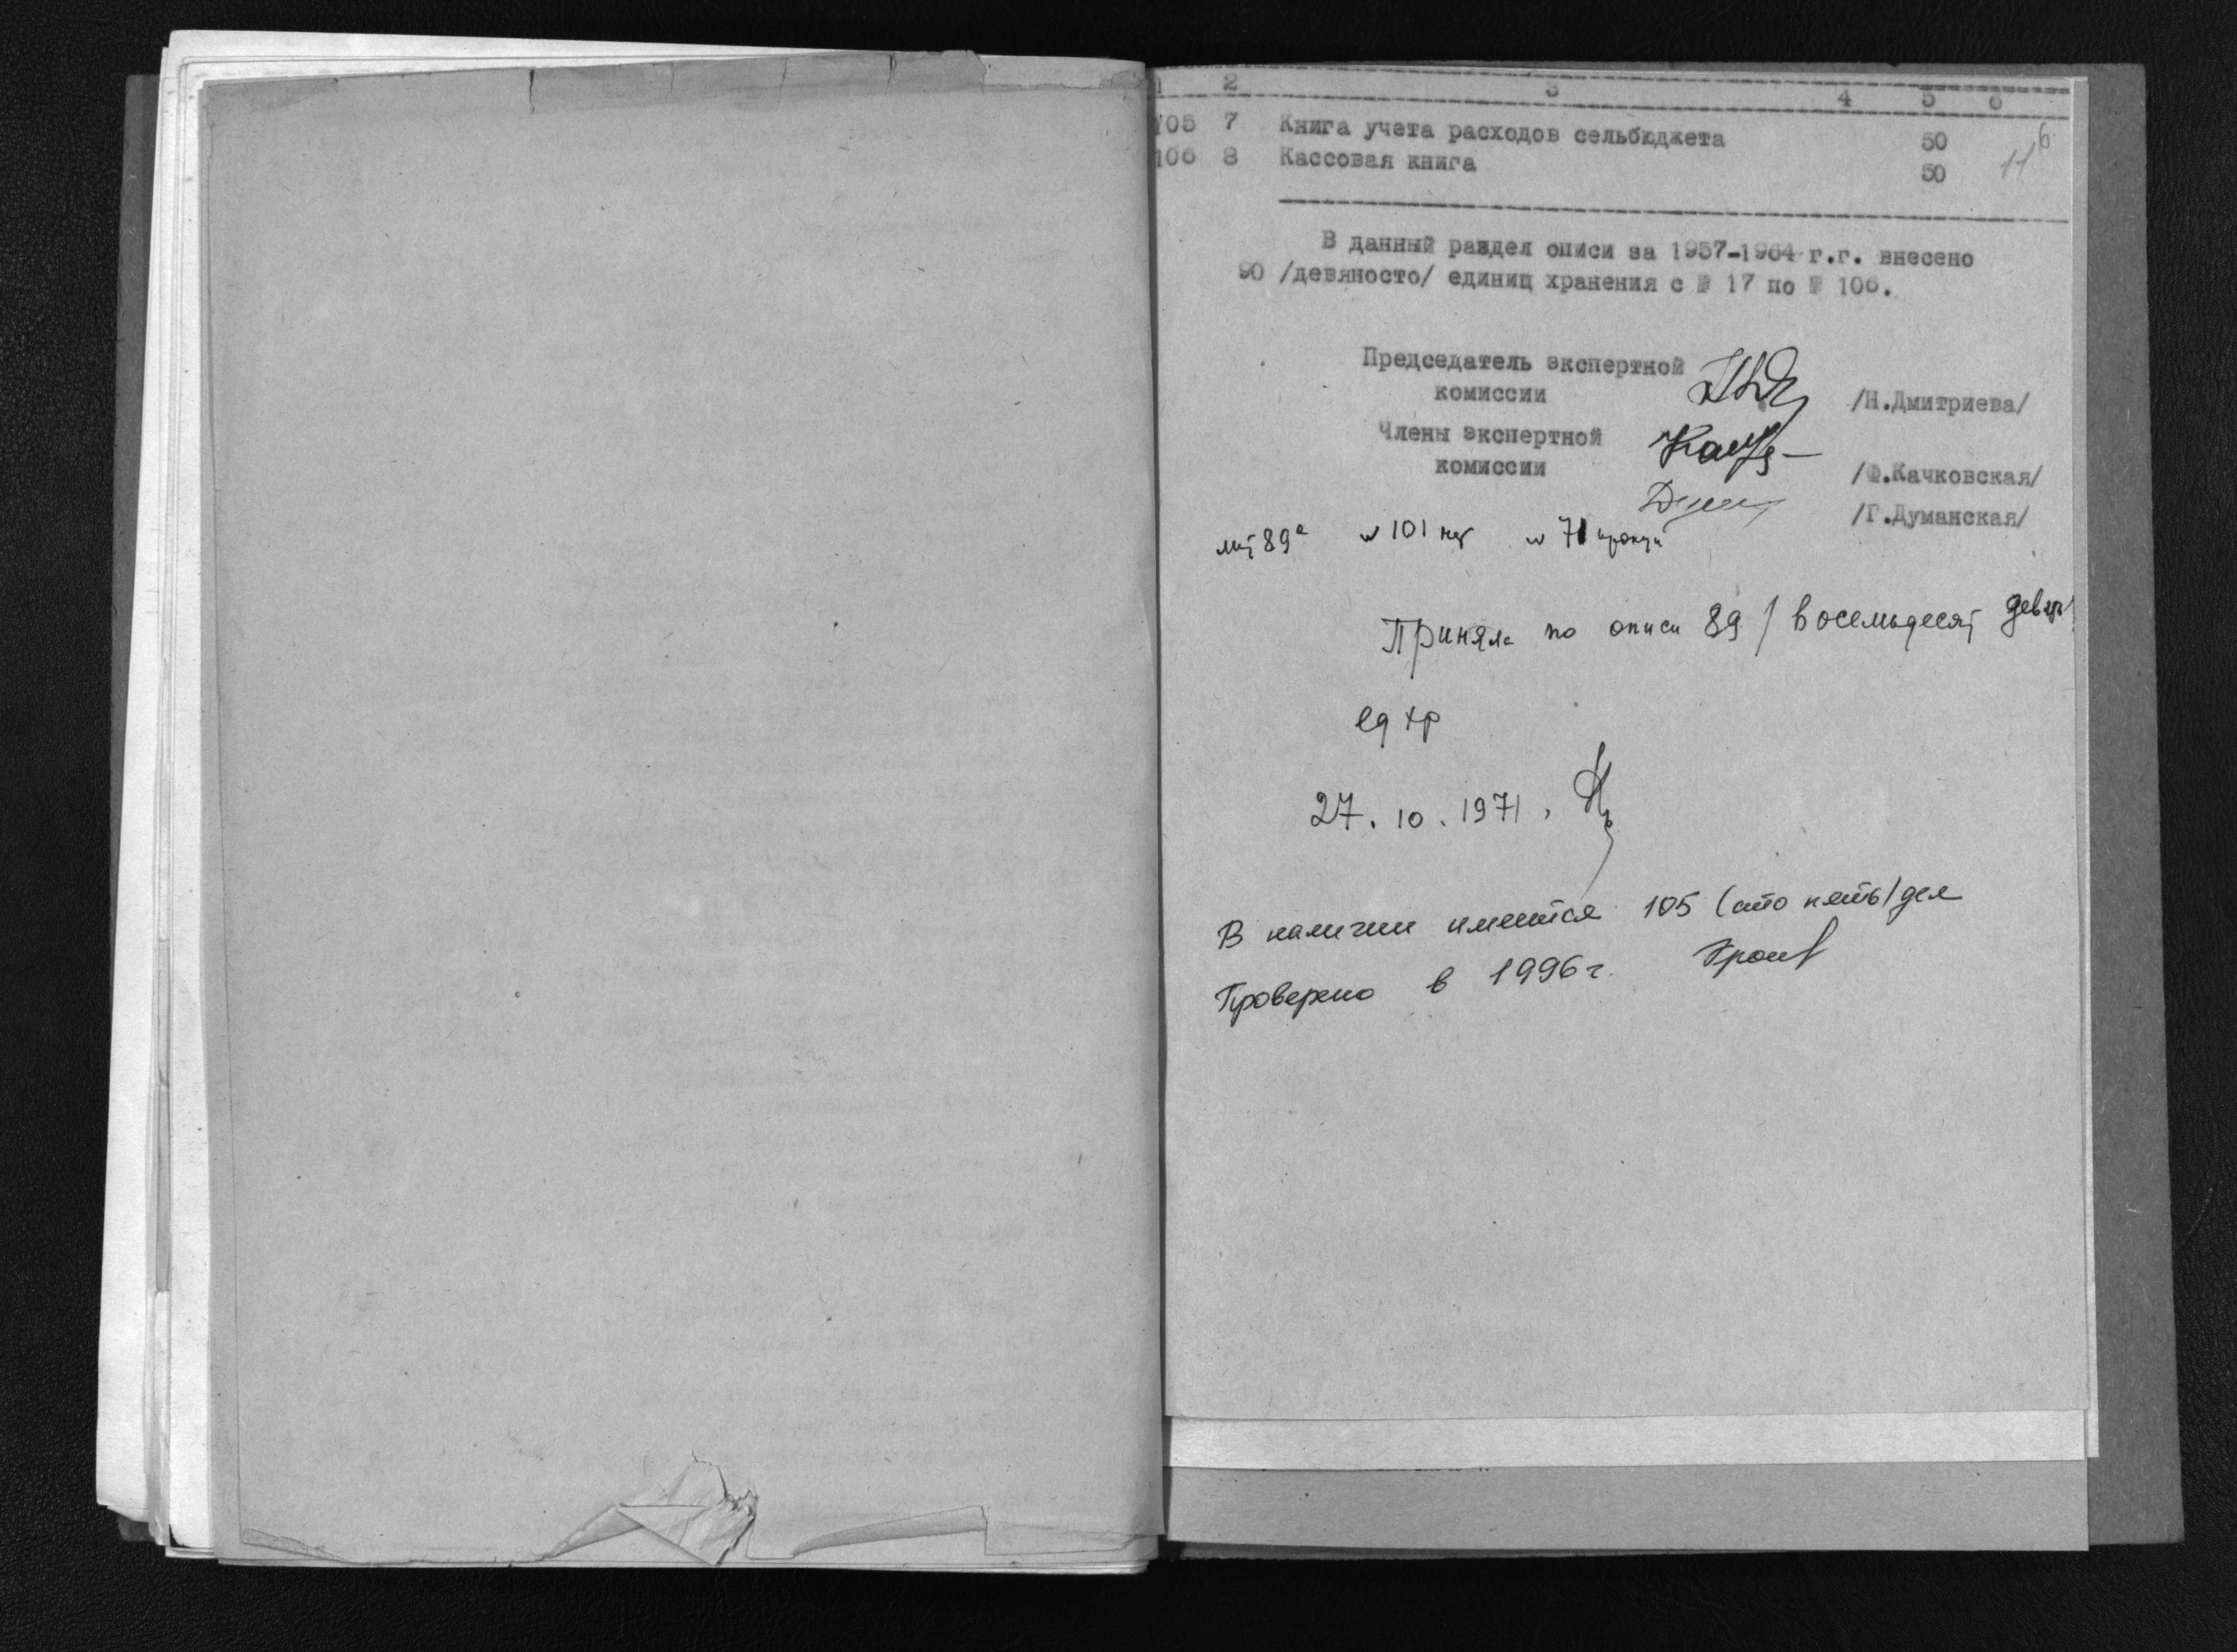 1 2 3 4 5 6
105 7 Книга учета расходов сельбюджета 50
106 8 Кассовая книга 50
11 6
В данный раздел описи за 1957-1964 г.г. внесено
90 /девяносто/ единиц хранения с № 17 по № 106.
Председатель экспертной
комиссии /Н.Дмитриева/
Члены экспертной
комиссии /Ф.Качковская/
/Г.Думанская/
лит 89а 101 71
Приняла по описи 89 / восемьдесят девять/
ед хр
27. 10. 1971.
В наличии имеется 105 (сто пять) дел
Проверено в 1996 г.